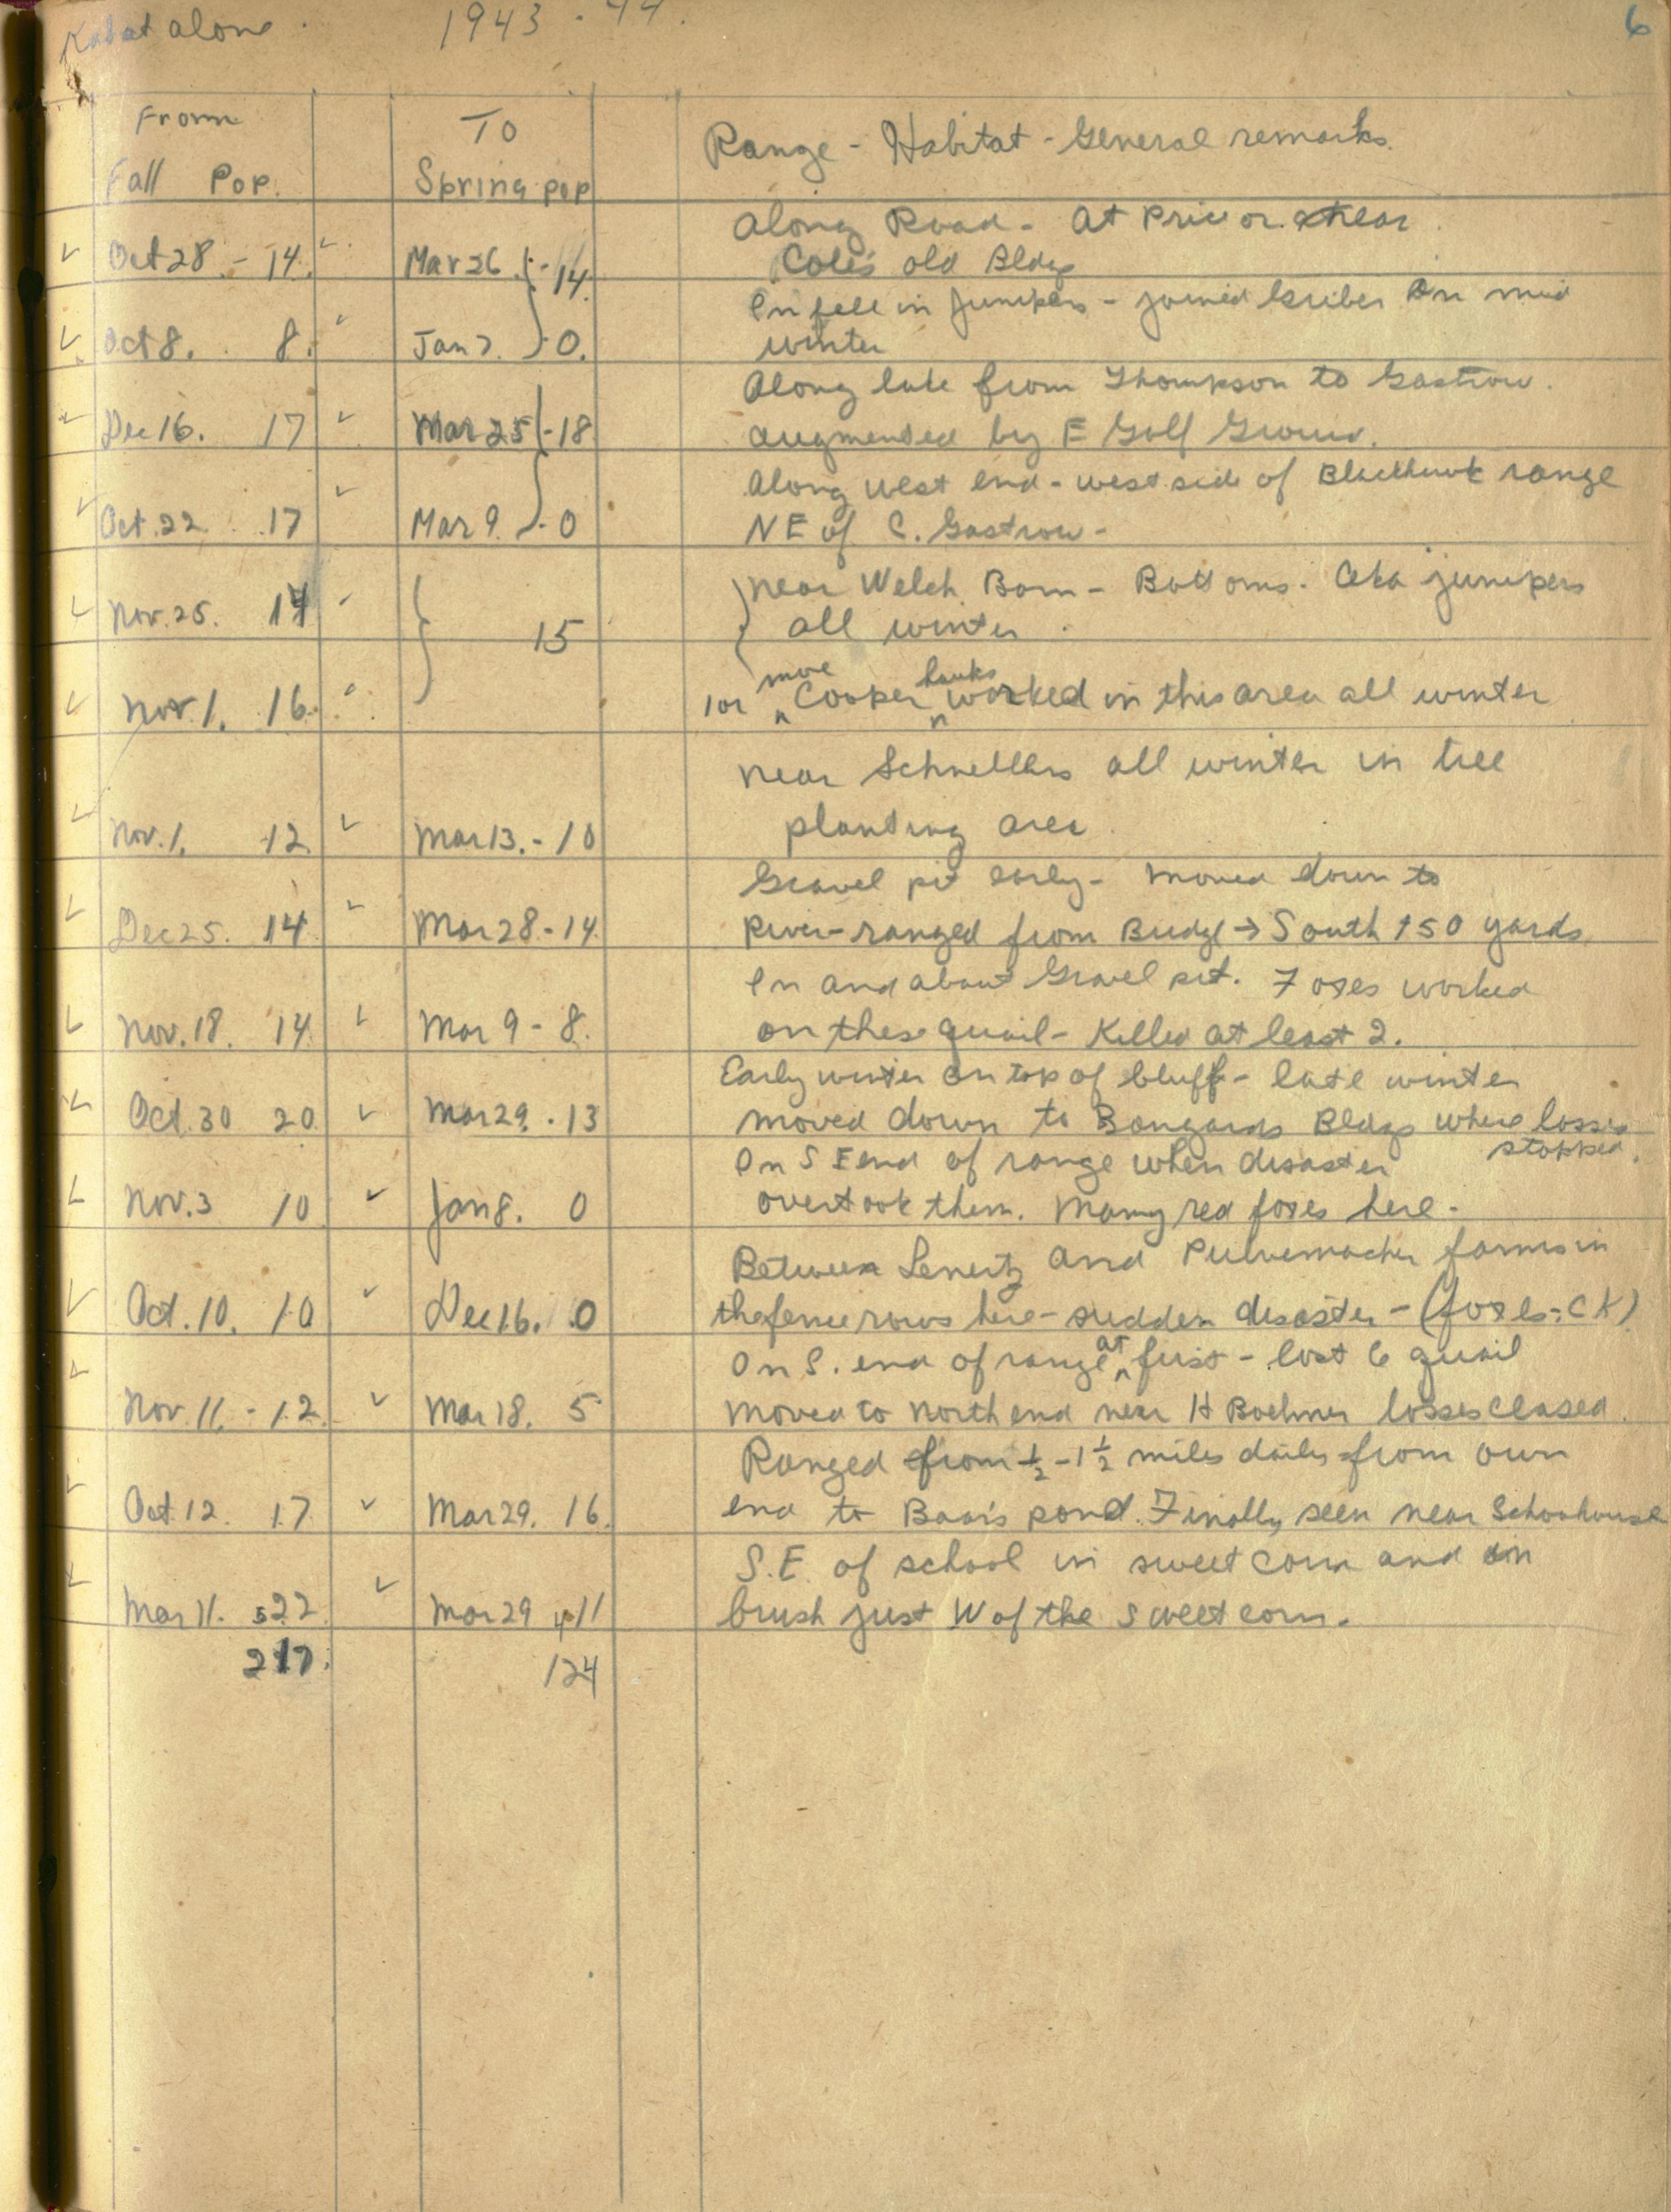 Kabat alone. 1943-44. 6
From To Range - Habitat - General remarks.
Fall Pop. Spring pop
Along Road - At Prier or near
✓ Oct 28. - 14. ✓ Mar 26. - 14. Cole's old Bldgs
In fall in junipers - joined Griber in mid
✓ Oct 8. 8. ✓ Jan 7. - 0. winter
Along lake from Thompson to Gastrow.
✓ Dec 16. 17 ✓ Mar 25 - 18 augmented by E Golf Group.
Along west end - west side of Blackhawk range
✓ Oct. 22. 17 ✓ Mar 9. - 0 NE of C. Gastrow -
near Welch Barn - Bottoms. Aka junipers
✓ Nov. 25. 14 ✓ 15 all winter.
more hawks
✓ Nov. 1. 16. ✓ 1 or Cooper worked in this area all winter
near Schnellers all winter in tree
✓ Nov. 1. 12 ✓ Mar 13. - 10 planting area.
Gravel pit early - moved down to
✓ Dec 25. 14 ✓ Mar 28 - 14. River - ranged from Bridge → South 150 yards.
In and about Gravel pit. Foxes worked
✓ Nov. 18. 14 ✓ Mar 9 - 8. on these quail - Killed at least 2.
Early winter on top of bluff - late winter
✓ Oct. 30 20 ✓ Mar 29. - 13 moved down to Bongards Bldgs where losses
stopped.
On S E end of range when disaster
✓ Nov. 3 10 ✓ Jan 8. 0 overtook them. Many red foxes here -
Between Lenertz and Pulvermacher farms in
✓ Oct. 10. 10 ✓ Dec 16. 0 the fence rows here - sudden disaster - (foxes = CK)
On S. end of range at first - lost 6 quail
✓ Nov. 11. - 12. ✓ Mar 18. 5 moved to north end near H Boehmer losses ceased.
Ranged from ½ - 1½ miles daily from own
✓ Oct. 12. 17 ✓ Mar 29. 16. end to Baar's pond. Finally seen near Schoolhouse
S.E. of school in sweet corn and in
✓ Mar 11. 22 ✓ Mar 29 11 brush just W of the sweet corn.
217. 124